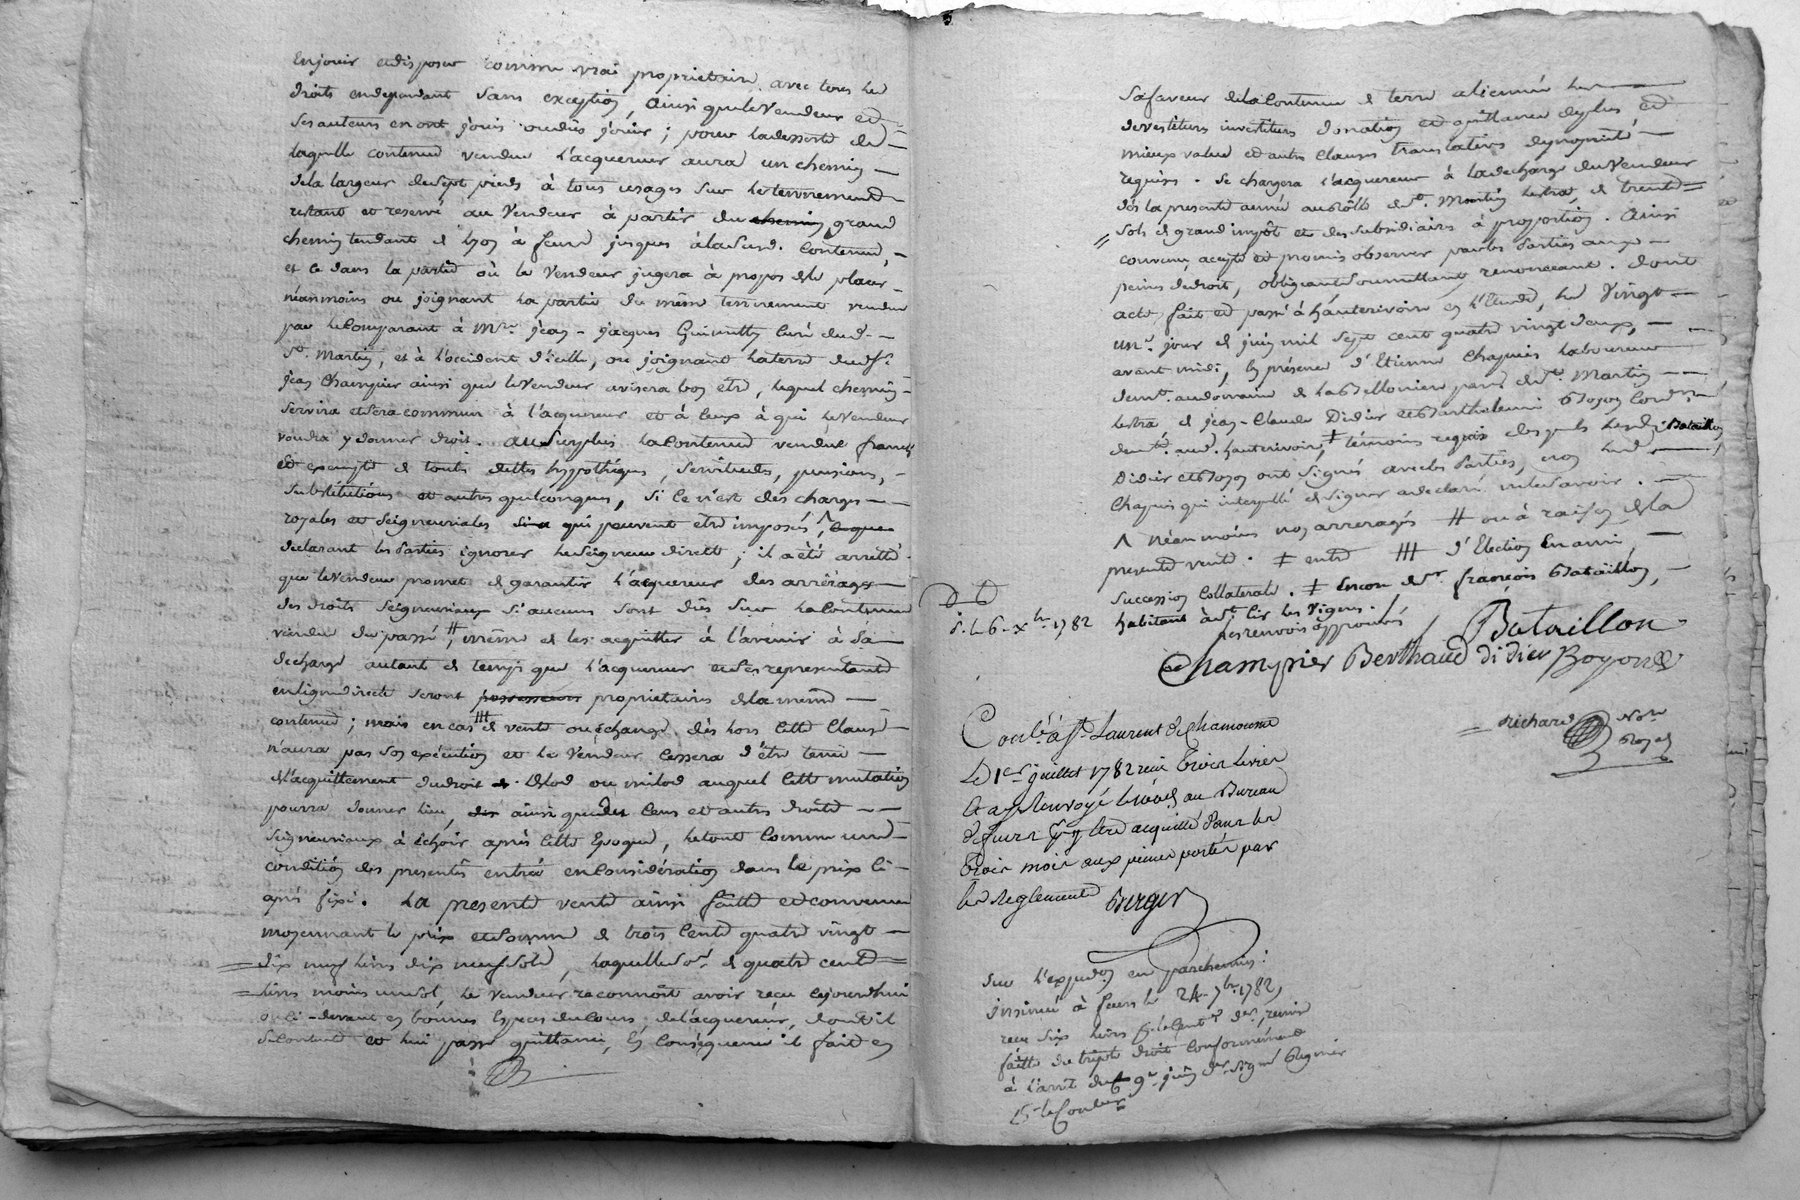 En jouir et disposer comme vrai proprietaire avec tous les
droits en dependant sans exception, ainsi que le vendeur et
ses auteurs en ont joui ou dûs jouir ; pour la desserte de
laquelle contenue vendue l'acquereur aura un chemin
de la largeur de sept pieds à tous usages sur le tennement
restant et reservé au vendeur à partir du chemin grand
chemin tendant de lyon à feurs jusques à la susd. contenue,
et ce dans la partie où le vendeur jugera à propos de le placer
néanmoins ou joignant la partie du même tennement vendue
par le comparant à Mre jean-jacques curé dud.
St. Martin, et à l'occident d'icelle, ou joignant la terre dud. sr.
jean Champier ainsi que le vendeur avisera bon être, lequel chemin
servira et sera commun à l'acquereur et à ceux à qui le vendeur
voudra y donner droit. au surplus la contenue vendue franche
et exempte de toutes dettes hypothéques, servitudes, pensions,
substitutions et autres quelconques, si ce n'est des charges
royales et seigneuriales qui peuvent être imposés,
declarant les parties ignorer le seigneur direct ; il a été arretté
que le vendeur promet de garantir l'acquereur des arrérages
des droits seigneuriaux si aucuns sont dûs sur la contenue
vendue du passé, # même de les acquitter à l'avenir à sa
decharge autant de temps que l'acquereur et ses representants
en ligne directe seront possesseurs proprietaires de la même
contenue ; mais en cas ⧻ de vente ou échange dès lors cette clause
n'aura pas son exécution et le vendeur cessera d'être tenu
de l'acquittement du droit de Lod ou milod auquel cette mutation
pourra donner lieu, des ainsi que du cens et autres droits
seigneuriaux à échoir après cette époque, le tout comme une
condition des presentes entrée en considération dans le prix ci-
après fixé. La presente vente ainsi faitte et convenue
moyennant le prix et somme de trois cents quatre vingt
dix neuf livres dix neuf sols, laquelle so.e de quatre cents
livres moins un sol, le vendeur reconnoit avoir reçu cejourdhui
ou ci-devant en bonnes especes du cours, de l'acquereur, dont il
se contente et lui passe quittance, En conséquence il fait en
sa faveur de la contenue de terre alienée les
devestitures investitures donation et quittance de plus et
mieux value et autres clauses translatives de proprieté
requises. se chargera l'acquereur à la decharge du vendeur
dès la presente année au rôlle de St. Martin lestra, de trente
sols de grand impôt et des subsidiaires à proportion. Ainsi
convenu, accepté et promis observer par les parties aux
peines de droit, obligeant soumettant renonceant. dont
acte, fait et passé à hauterivoire en l'Etude, le vingt
un.e jour de juin mil sept cent quatre vingt deux,
avant midi, en présence d'Etienne Chapuis laboureur
demt. au domaine de la parr. de St. Martin
lestra, de jean-Claude Didier et Barthelemi Boyon
demts. aud. hauterivoire, ‡ témoins requis desquels lesd. Bataillon
Didier et Boyon ont signés avec les parties, non led.
Chapuis qui interpellé de signer a declaré ne le savoir.
Λ néanmoins nos arrerages # ou à raison de la
presente vente. ‡ entre ⧻ d'Election en ami,
succession collaterale. ‡ Encore de sr. françois Bataillon,
habitant à St. Cir les Vignes.
les renvois approuvés
Bataillon
Champier Berthaud didier Boyon
Richard Nore
Royal
d. le 6. Xbre 1782
Contlé à St. Laurent de Chamousset
Le 1er juillet 1782 reçu trois livres
et ay renvoyé le au Bureau
de feurs pr y être acquitté dans les
trois mois aux peines portées par
les Reglements Berger
sur l'expedon en parchemin :
insinué à feurs le 24. 7bre 1782,
reçu six livres
faitte du triple droit conformément
à l'arrêt du 9e juin der. signé